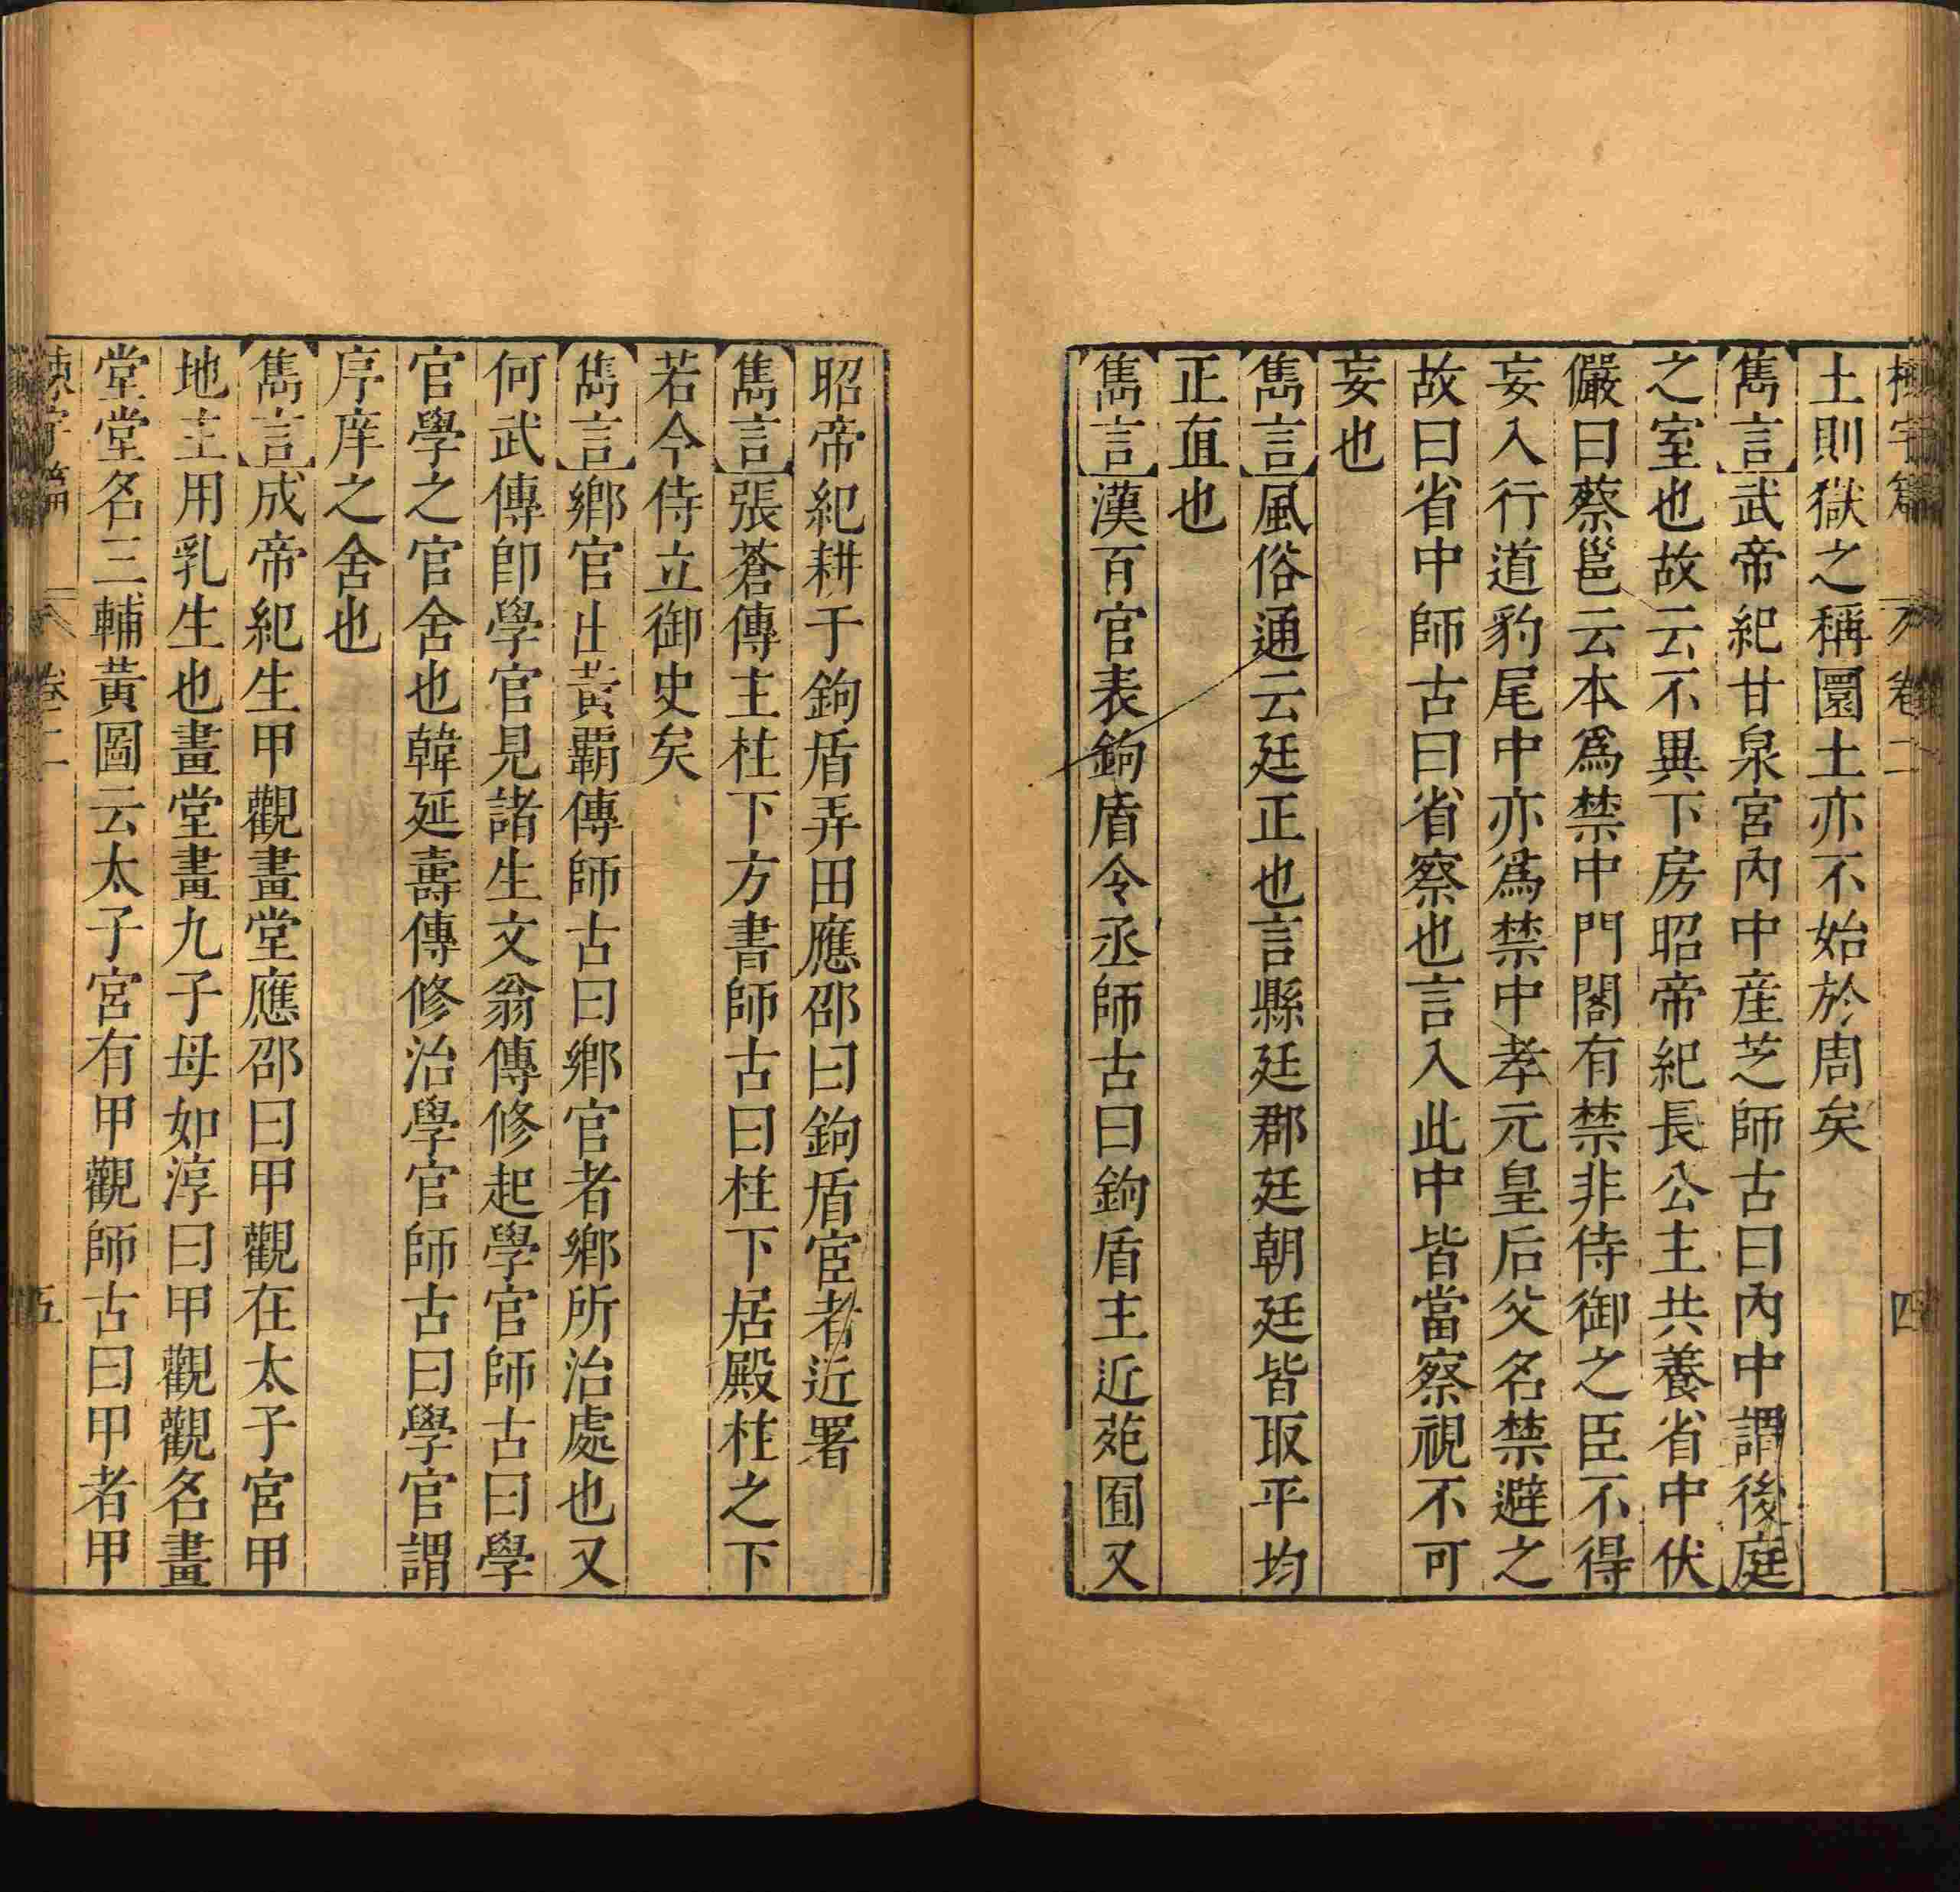 土則獄之稱圜土亦不始於周矣
雋言武帝紀甘泉宮內中產芝師古曰內中謂後庭
之室也故云不異下房昭帝紀長公主共養省中伏
儼曰蔡邕云本爲禁中門閤有禁非侍御之臣不得
妄入行道豹尾中亦爲禁中孝元皇后父名禁避之
故曰省中師古曰省察也言入此中皆當察視不可
妄也
雋言風俗通云廷正也言縣廷郡廷朝廷皆取平均
正直也
雋言漢百官表鉤盾令丞師古曰鉤盾主近苑囿又
昭帝紀耕于鉤盾弄田應邵曰鉤盾宦者近署
雋言張蒼傳主柱下方書師古曰柱下居殿柱之下
若今侍立御史矣
雋言鄉官出黃霸傳師古曰鄉官者鄉所治處也又
何武傳卽學官見諸生文翁傳修起學官師古曰學
官學之官舍也韓延壽傳修治學官師古曰學官謂
序庠之舍也
雋言成帝紀生甲觀畫堂應邵曰甲觀在太子宮甲
地主用乳生也畫堂畫九子母如淳曰甲觀觀名畫
堂堂名三輔黃圖云太子宮有甲觀師古曰甲者甲
卷二 四
字篇 卷二 五